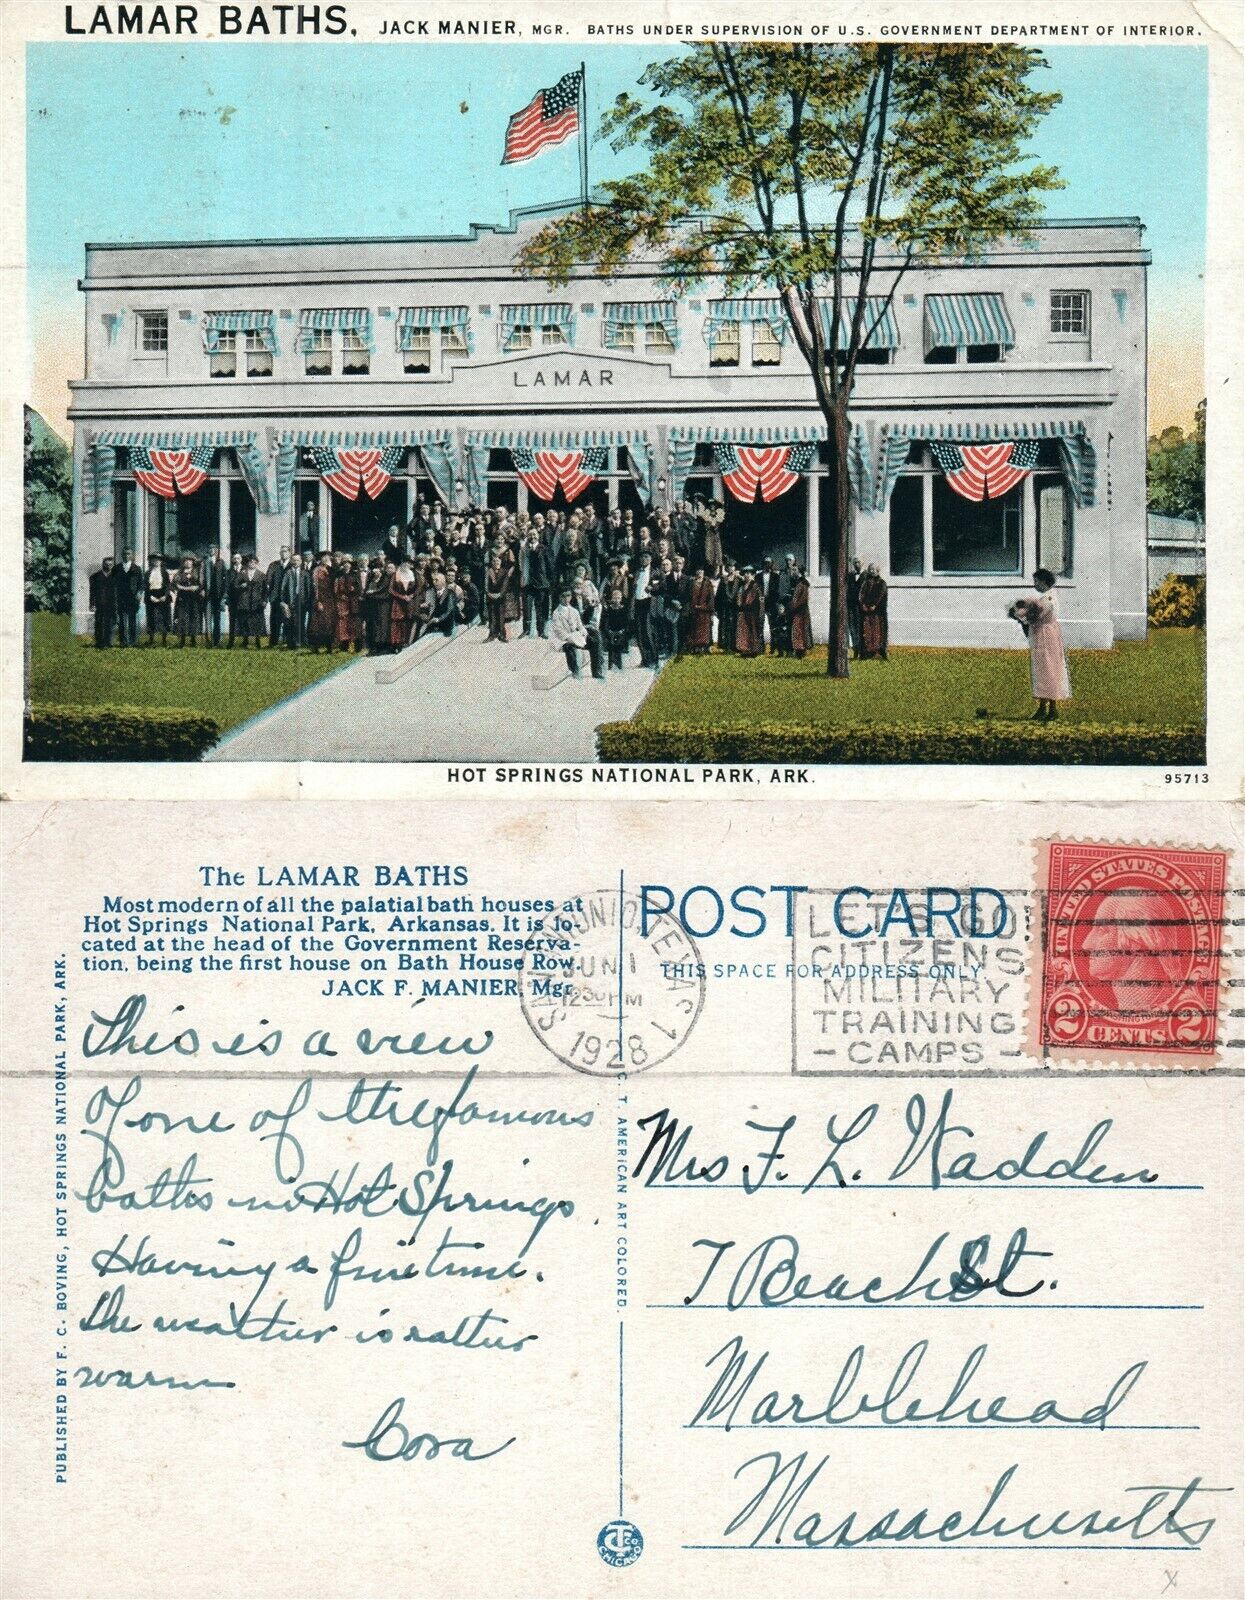 LAMAR BATHS, JACK MANIER, MGR. BATHS UNDER SUPERVISION OF U.S. GOVERNMENT DEPARTMENT OF INTERIOR.
LAMAR
HOT SPRINGS NATIONAL PARK, ARK.
95713
The LAMAR BATHS
Most modern of all the palatial bath houses at
Hot Springs National Park, Arkansas. It is lo-
cated at the head of the Government Reserva-
tion, being the first house on Bath House Row.
JACK F. MANIER, Mgr.
This is a view
of one of the famous
baths in Hot Springs.
Having a fine time.
The weather is rather
warm
Cora
PUBLISHED BY F. C. BOVING, HOT SPRINGS NATIONAL PARK, ARK.
C. T. AMERICAN ART COLORED.
POST CARD
THIS SPACE FOR ADDRESS ONLY
SAN ANTONIO, TEXAS 1
JUN 1
12 30 PM
1928
LET'S GO!
CITIZENS
MILITARY
TRAINING
- CAMPS -
UNITED STATES POSTAGE
WASHINGTON
2 CENTS 2
Mrs F. L. Wadden
7 Beach St.
Marblehead
Massachusetts
CT CO
CHICAGO
x